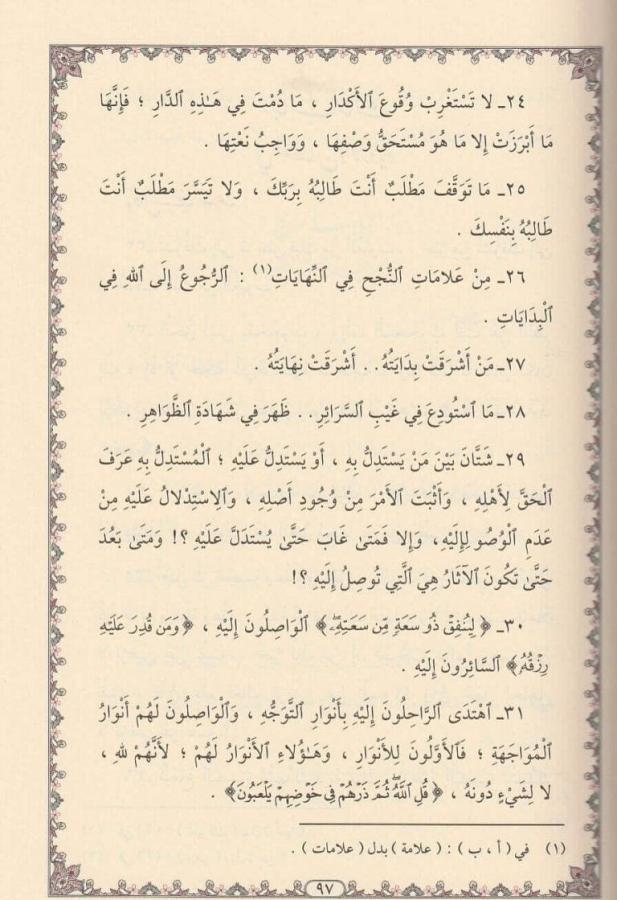 ٢٤ـ لا تَسْتَغْرِبْ وُقُوعَ ٱلأَكْدَارِ ، مَا دُمْتَ فِي هَـٰذِهِ ٱلدَّارِ ؛ فَإِنَّهَا
مَا أَبْرَزَتْ إِلا مَا هُوَ مُسْتَحَقُّ وَصْفِهَا ، وَوَاجِبُ نَعْتِهَا .
٢٥ـ مَا تَوَقَّفَ مَطْلَبٌ أَنْتَ طَالِبُهُ بِرَبِّكَ ، وَلا تَيَسَّرَ مَطْلَبٌ أَنْتَ
طَالِبُهُ بِنَفْسِكَ .
٢٦ـ مِنْ عَلامَاتِ ٱلنُّجْحِ فِي ٱلنِّهَايَاتِ(١) : ٱلرُّجُوعُ إِلَى ٱللهِ فِي
ٱلْبِدَايَاتِ .
٢٧ـ مَنْ أَشْرَقَتْ بِدَايَتُهُ . . أَشْرَقَتْ نِهَايَتُهُ .
٢٨ـ مَا ٱسْتُودِعَ فِي غَيْبِ ٱلسَّرَائِرِ . . ظَهَرَ فِي شَهَادَةِ ٱلظَّوَاهِرِ .
٢٩ـ شَتَّانَ بَيْنَ مَنْ يَسْتَدِلُّ بِهِ ، أَوْ يَسْتَدِلُّ عَلَيْهِ ؛ ٱلْمُسْتَدِلُّ بِهِ عَرَفَ
ٱلْحَقَّ لِأَهْلِهِ ، وَأَثْبَتَ ٱلأَمْرَ مِنْ وُجُودِ أَصْلِهِ ، وَٱلِاسْتِدْلالُ عَلَيْهِ مِنْ
عَدَمِ ٱلْوُصُولِ إِلَيْهِ، وَإِلا فَمَتَىٰ غَابَ حَتَّىٰ يُسْتَدَلَّ عَلَيْهِ ؟! وَمَتَىٰ بَعُدَ
حَتَّىٰ تَكُونَ ٱلآثَارُ هِيَ ٱلَّتِي تُوصِلُ إِلَيْهِ ؟!
٣٠ـ ﴿ لِيُنفِقْ ذُو سَعَةٍ مِّن سَعَتِهِۦۖ ﴾ ٱلْوَاصِلُونَ إِلَيْهِ ، ﴿ وَمَن قُدِرَ عَلَيْهِ
رِزْقُهُۥ ﴾ ٱلسَّائِرُونَ إِلَيْهِ .
٣١ـ ٱهْتَدَى ٱلرَّاحِلُونَ إِلَيْهِ بِأَنْوَارِ ٱلتَّوَجُّهِ ، وَٱلْوَاصِلُونَ لَهُمْ أَنْوَارُ
ٱلْمُوَاجَهَةِ ؛ فَٱلأَوَّلُونَ لِلأَنْوَارِ ، وَهَـٰؤُلاءِ ٱلأَنْوَارُ لَهُمْ ؛ لأَنَّهُمْ للهِ ،
لا لِشَيْءٍ دُونَهُ ، ﴿ قُلِ ٱللَّهُۖ ثُمَّ ذَرْهُمْ فِى خَوْضِهِمْ يَلْعَبُونَ ﴾ .
(١) في ( أ ، ب ) : ( علامة ) بدل ( علامات ) .
٩٧